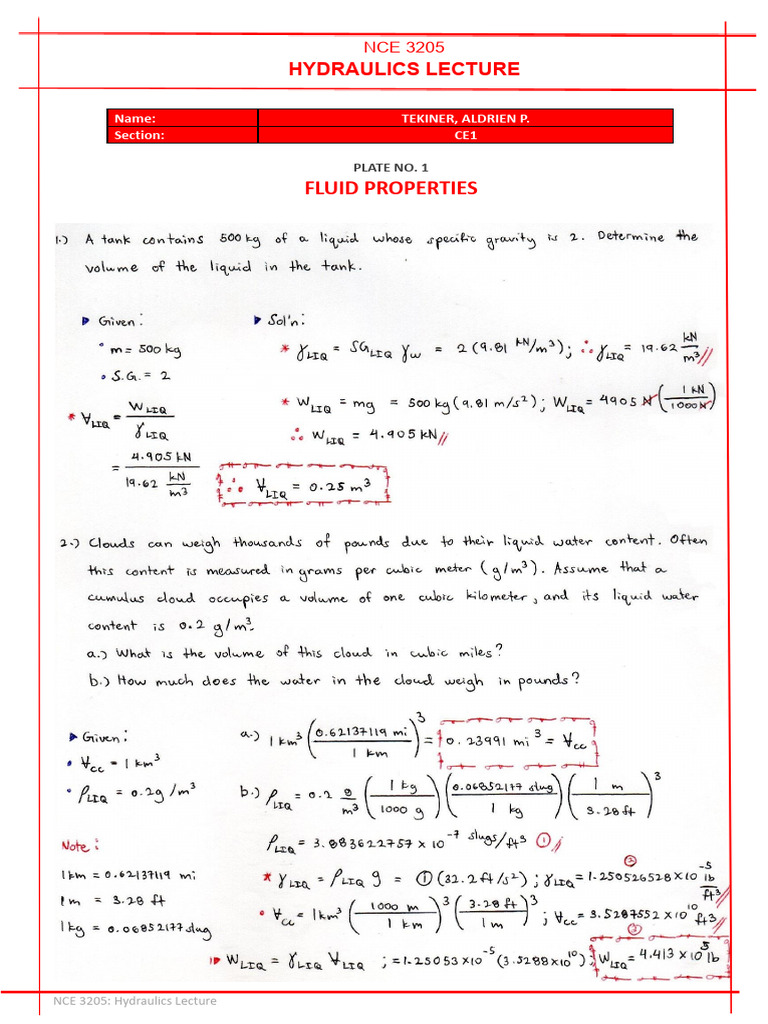 NCE 3205
HYDRAULICS LECTURE
Name: TEKINER, ALDRIEN P.
Section: CE1
PLATE NO. 1
FLUID PROPERTIES
1.) A tank contains 500 kg of a liquid whose specific gravity is 2. Determine the
volume of the liquid in the tank.
Given:
• m = 500 kg
• S.G. = 2
* V_LIQ = W_LIQ / γ_LIQ
= 4.905 kN / 19.62 kN/m³
∴ V_LIQ = 0.25 m³
Sol'n:
* γ_LIQ = SG_LIQ γ_w = 2 (9.81 kN/m³); ∴ γ_LIQ = 19.62 kN/m³ //
* W_LIQ = mg = 500 kg (9.81 m/s²); W_LIQ = 4905 N (1 kN / 1000 N)
∴ W_LIQ = 4.905 kN //
2.) Clouds can weigh thousands of pounds due to their liquid water content. Often
this content is measured in grams per cubic meter (g/m³). Assume that a
cumulus cloud occupies a volume of one cubic kilometer, and its liquid water
content is 0.2 g/m³.
a.) What is the volume of this cloud in cubic miles?
b.) How much does the water in the cloud weigh in pounds?
Given:
• V_cc = 1 km³
• ρ_LIQ = 0.2 g/m³
Note:
1 km = 0.62137119 mi
1 m = 3.28 ft
1 kg = 0.06852177 slug
a.) 1 km³ (0.62137119 mi / 1 km)³ = 0.23991 mi³ = V_cc
b.) ρ_LIQ = 0.2 g/m³ (1 kg / 1000 g) (0.06852177 slug / 1 kg) (1 m / 3.28 ft)³
ρ_LIQ = 3.883622757 × 10⁻⁷ slugs/ft³ ① //
* γ_LIQ = ρ_LIQ g = ① (32.2 ft/s²); γ_LIQ = 1.250526528 × 10⁻⁵ lb/ft³ // ②
• V_cc = 1 km³ (1000 m / 1 km)³ (3.28 ft / 1 m)³; V_cc = 3.5287552 × 10¹⁰ ft³ // ③
W_LIQ = γ_LIQ V_LIQ ; = 1.25053 × 10⁻⁵ (3.5288 × 10¹⁰); W_LIQ = 4.413 × 10⁵ lb
NCE 3205: Hydraulics Lecture